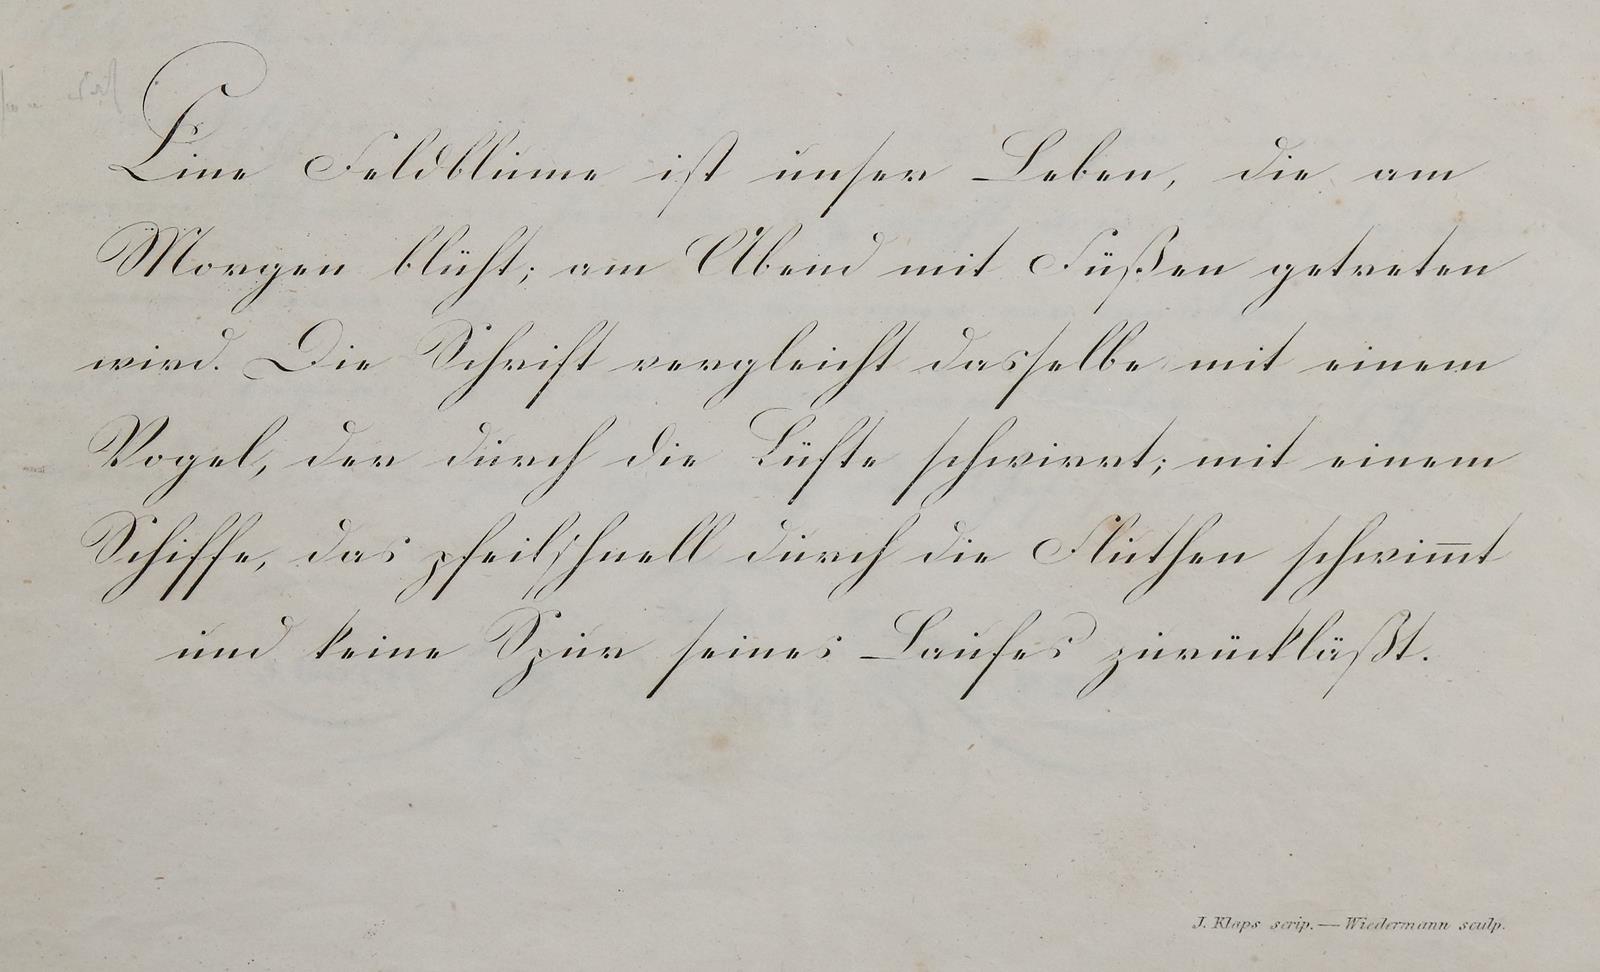 Eine Feldblume ist unser Leben, die am
Morgen blüht; am Abend mit Füßen getreten
wird. Die Schrift vergleicht dasselbe mit einem
Vogel, der durch die Lüfte schwirrt; mit einem
Schiffe, das pfeilschnell durch die Fluthen schwim̅t
und keine Spur seines Laufes zurückläßt.
J. Klaps scrip. — Wiedermann sculp.